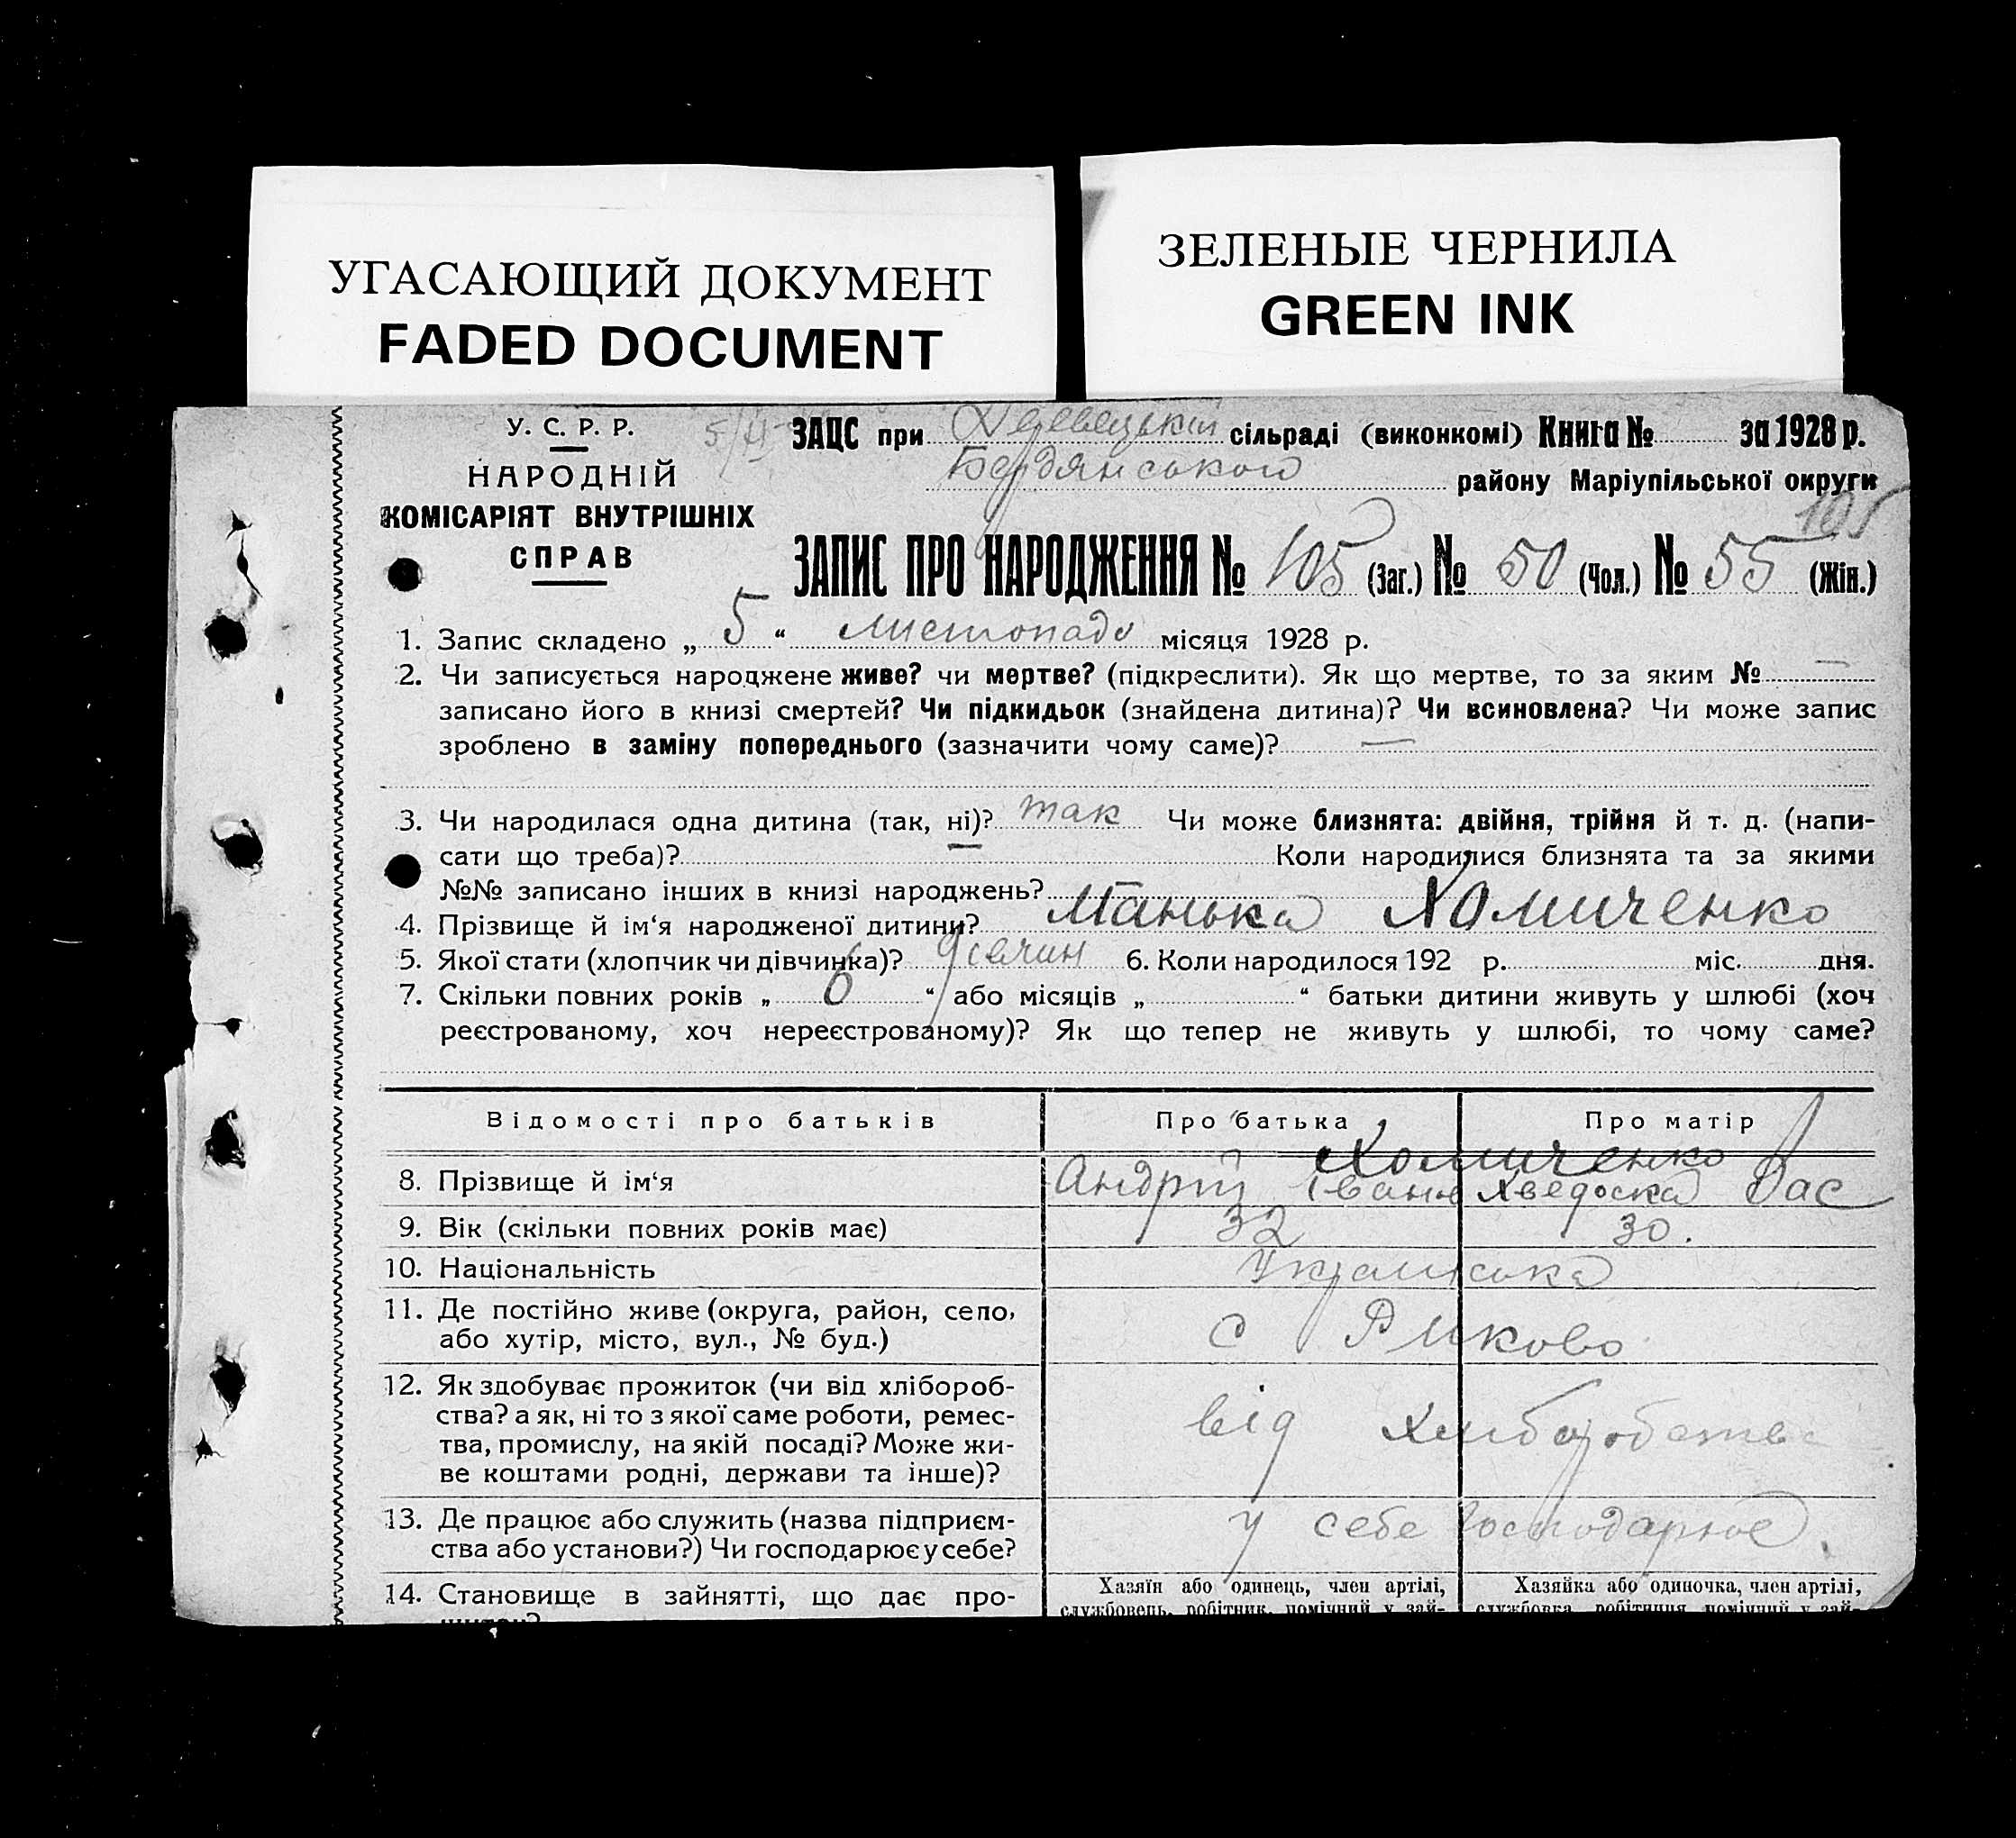 УГАСАЮЩИЙ ДОКУМЕНТ
FADED DOCUMENT
ЗЕЛЕНЫЕ ЧЕРНИЛА
GREEN INK
У. С. Р. Р.
НАРОДНІЙ
КОМІСАРІЯТ ВНУТРІШНІХ
СПРАВ
ЗАЦС при сільраді (виконкомі) Книга № за 1928 р.
Бердянського району Маріупільської округи
105
ЗАПИС ПРО НАРОДЖЕННЯ № 105 (Заг.) № 50 (Чол.) № 55 (Жін.)
1. Запис складено „ 5 “ листопада місяця 1928 р.
2. Чи записується народжене живе? чи мертве? (підкреслити). Як що мертве, то за яким № —
записано його в книзі смертей? Чи підкидьок (знайдена дитина)? Чи всиновлена? Чи може запис
зроблено в заміну попереднього (зазначити чому саме)? —
3. Чи народилася одна дитина (так, ні)? так Чи може близнята: двійня, трійня й т. д. (напи-
сати що треба)? Коли народилися близнята та за якими
№№ записано інших в книзі народжень?
4. Прізвище й ім‘я народженої дитини? Манька Хомиченко
5. Якої стати (хлопчик чи дівчинка)? дівчин 6. Коли народилося 192 р. міс. дня.
7. Скільки повних років „ 6 “ або місяців „ “ батьки дитини живуть у шлюбі (хоч
реєстрованому, хоч нереєстрованому)? Як що тепер не живуть у шлюбі, то чому саме?
Відомості про батьків Про батька Про матір
Хомиченко
8. Прізвище й ім‘я Андрій Іванов Хведоска Вас
9. Вік (скільки повних років має) 32 30.
10. Національність Українська
11. Де постійно живе (округа, район, село,
або хутір, місто, вул., № буд.) с
12. Як здобуває прожиток (чи від хлібороб-
ства? а як, ні то з якої саме роботи, ремес-
тва, промислу, на якій посаді? Може жи-
ве коштами родні, держави та інше)? від хліборобства
13. Де працює або служить (назва підприєм-
ства або установи?) Чи господарює у себе? у себе господарює.
14. Становище в зайнятті, що дає про-
Хазяїн або одинець, член артілі,
службовець, робітник, помічний у зай-
Хазяйка або одиночка, член артілі,
службовка, робітниця, помічний у зай-